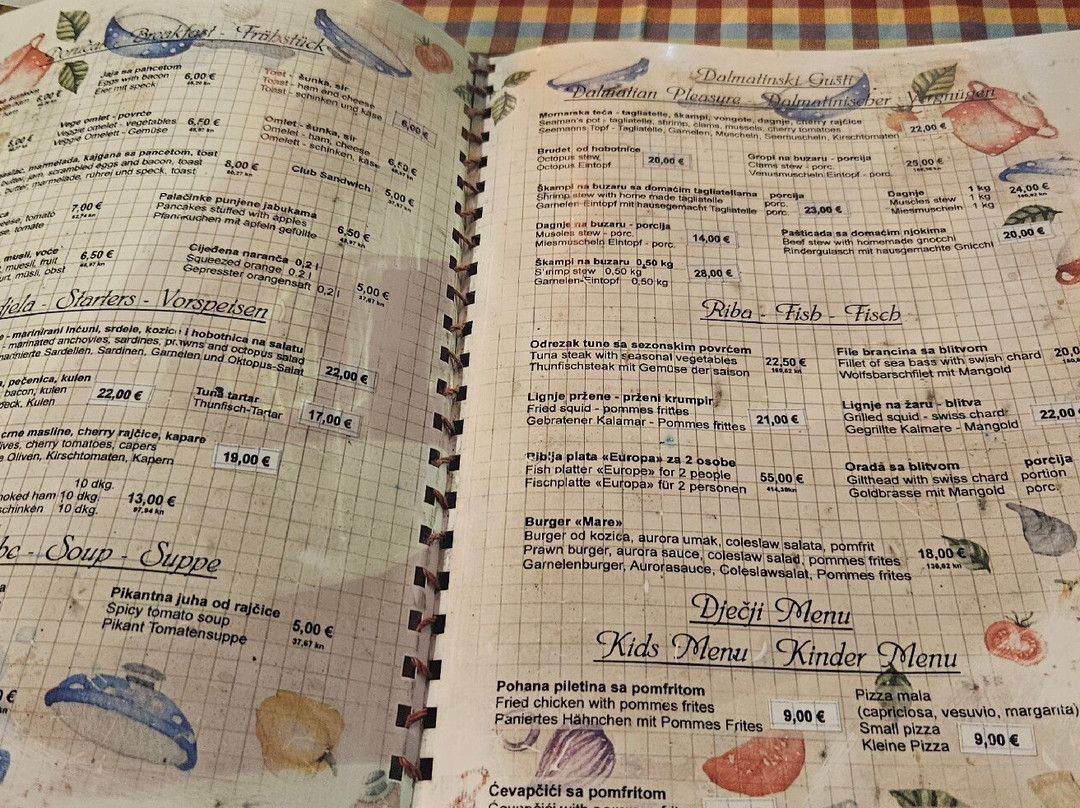 Doručak - Breakfast - Frühstück
Jaja sa pancetom
Eggs with bacon
Eier mit speck
6,00 €
Toast - šunka, sir
Toast - ham and cheese
Toast - schinken und käse
6,00 €
6,00 €
5,00 €
Vege omlet - povrće
Veggie omelet - vegetables
Veggie Omelett - Gemüse
6,50 €
Omlet - šunka, sir
Omelet - ham, cheese
Omelett - schinken, käse
6,50 €
marmelada, kajgana sa pancetom, tost
butter, jam, scrambled eggs and bacon, toast
butter, marmelade, rührei und speck, toast
8,00 €
Club Sandwich
5,00 €
tomato
tomate
7,00 €
Palačinke punjene jabukama
Pancakes stuffed with apples
Pfannkuchen mit apfeln gefüllte
6,50 €
musli, voće
muesli, fruit
müsli, obst
6,50 €
Cijeđena naranča 0,2 l
Squeezed orange 0,2 l
Gepresster orangensaft 0,2 l
5,00 €
37,67 kn
jela - Starters - Vorspeisen
- marinirani inćuni, srdele, kozice i hobotnica na salatu
- marinated anchovies, sardines, prawns and octopus salad
marinierte Sardellen, Sardinen, Garnelen und Oktopus-Salat
22,00 €
pečenica, kulen
bacon, kulen
Kulen
22,00 €
Tuna tartar
Thunfisch-Tartar
17,00 €
crne masline, cherry rajčice, kapare
cherry tomatoes, capers
Oliven, Kirschtomaten, Kapern
19,00 €
10 dkg.
ham 10 dkg.
schinken 10 dkg.
13,00 €
97,94 kn
- Soup - Suppe
Pikantna juha od rajčice
Spicy tomato soup
Pikant Tomatensuppe
5,00 €
37,67 kn
Dalmatinski Gušti
Dalmatian Pleasure - Dalmatinischer Vergnügen
Mornarska teća - tagliatelle, škampi, vongole, dagnje, cherry rajčice
Seaman's pot - tagliatelle, shrimp, clams, mussels, cherry tomatoes
Seemanns Topf - Tagliatelle, Garnelen, Muscheln, Seemuscheln, Kirschtomaten
22,00 €
Brudet od hobotnice
Octopus stew
Octopus Eintopf
20,00 €
Gropi na buzaru - porcija
Clams stew - porc.
Venusmuscheln Eintopf - porc.
25,00 €
Škampi na buzaru sa domaćim tagliatellama porcija
Shrimp stew with home made tagliatelle porc.
Garnelen-Eintopf mit hausegemacht Tagliatelle porc.
23,00 €
Dagnje 1 kg
Muscles stew 1 kg
Miesmuscheln 1 kg
24,00 €
Dagnje na buzaru - porcija
Muscles stew - porc.
Miesmuscheln Eintopf - porc.
14,00 €
Pašticada sa domaćim njokima
Beef stew with homemade gnocchi
Rindergulasch mit hausgemachte Gnicchi
20,00 €
Škampi na buzaru 0,50 kg
Shrimp stew 0,50 kg
Garnelen-Eintopf 0,50 kg
28,00 €
Riba - Fish - Fisch
Odrezak tune sa sezonskim povrćem
Tuna steak with seasonal vegetables
Thunfischsteak mit Gemüse der saison
22,50 €
File brancina sa blitvom
Fillet of sea bass with swish chard
Wolfsbarschfilet mit Mangold
20,0
Lignje pržene - prženi krumpir
Fried squid - pommes frites
Gebratener Kalamar - Pommes frites
21,00 €
Lignje na žaru - blitva
Grilled squid - swiss chard
Gegrillte Kalmare - Mangold
22,00
Riblja plata «Europa» za 2 osobe
Fish platter «Europe» for 2 people
Fischplatte «Europa» für 2 personen
55,00 €
Orada sa blitvom porcija
Gilthead with swiss chard portion
Goldbrasse mit Mangold porc.
Burger «Mare»
Burger od kozica, aurora umak, coleslaw salata, pomfrit
Prawn burger, aurora sauce, coleslaw salad, pommes frites
Garnelenburger, Aurorasauce, Coleslawsalat, Pommes frites
18,00 €
Dječji Menu
Kids Menu Kinder Menu
Pohana piletina sa pomfritom
Fried chicken with pommes frites
Paniertes Hähnchen mit Pommes Frites
9,00 €
Pizza mala
(capriciosa, vesuvio, margarita)
Small pizza
Kleine Pizza
9,00 €
Ćevapčići sa pomfritom